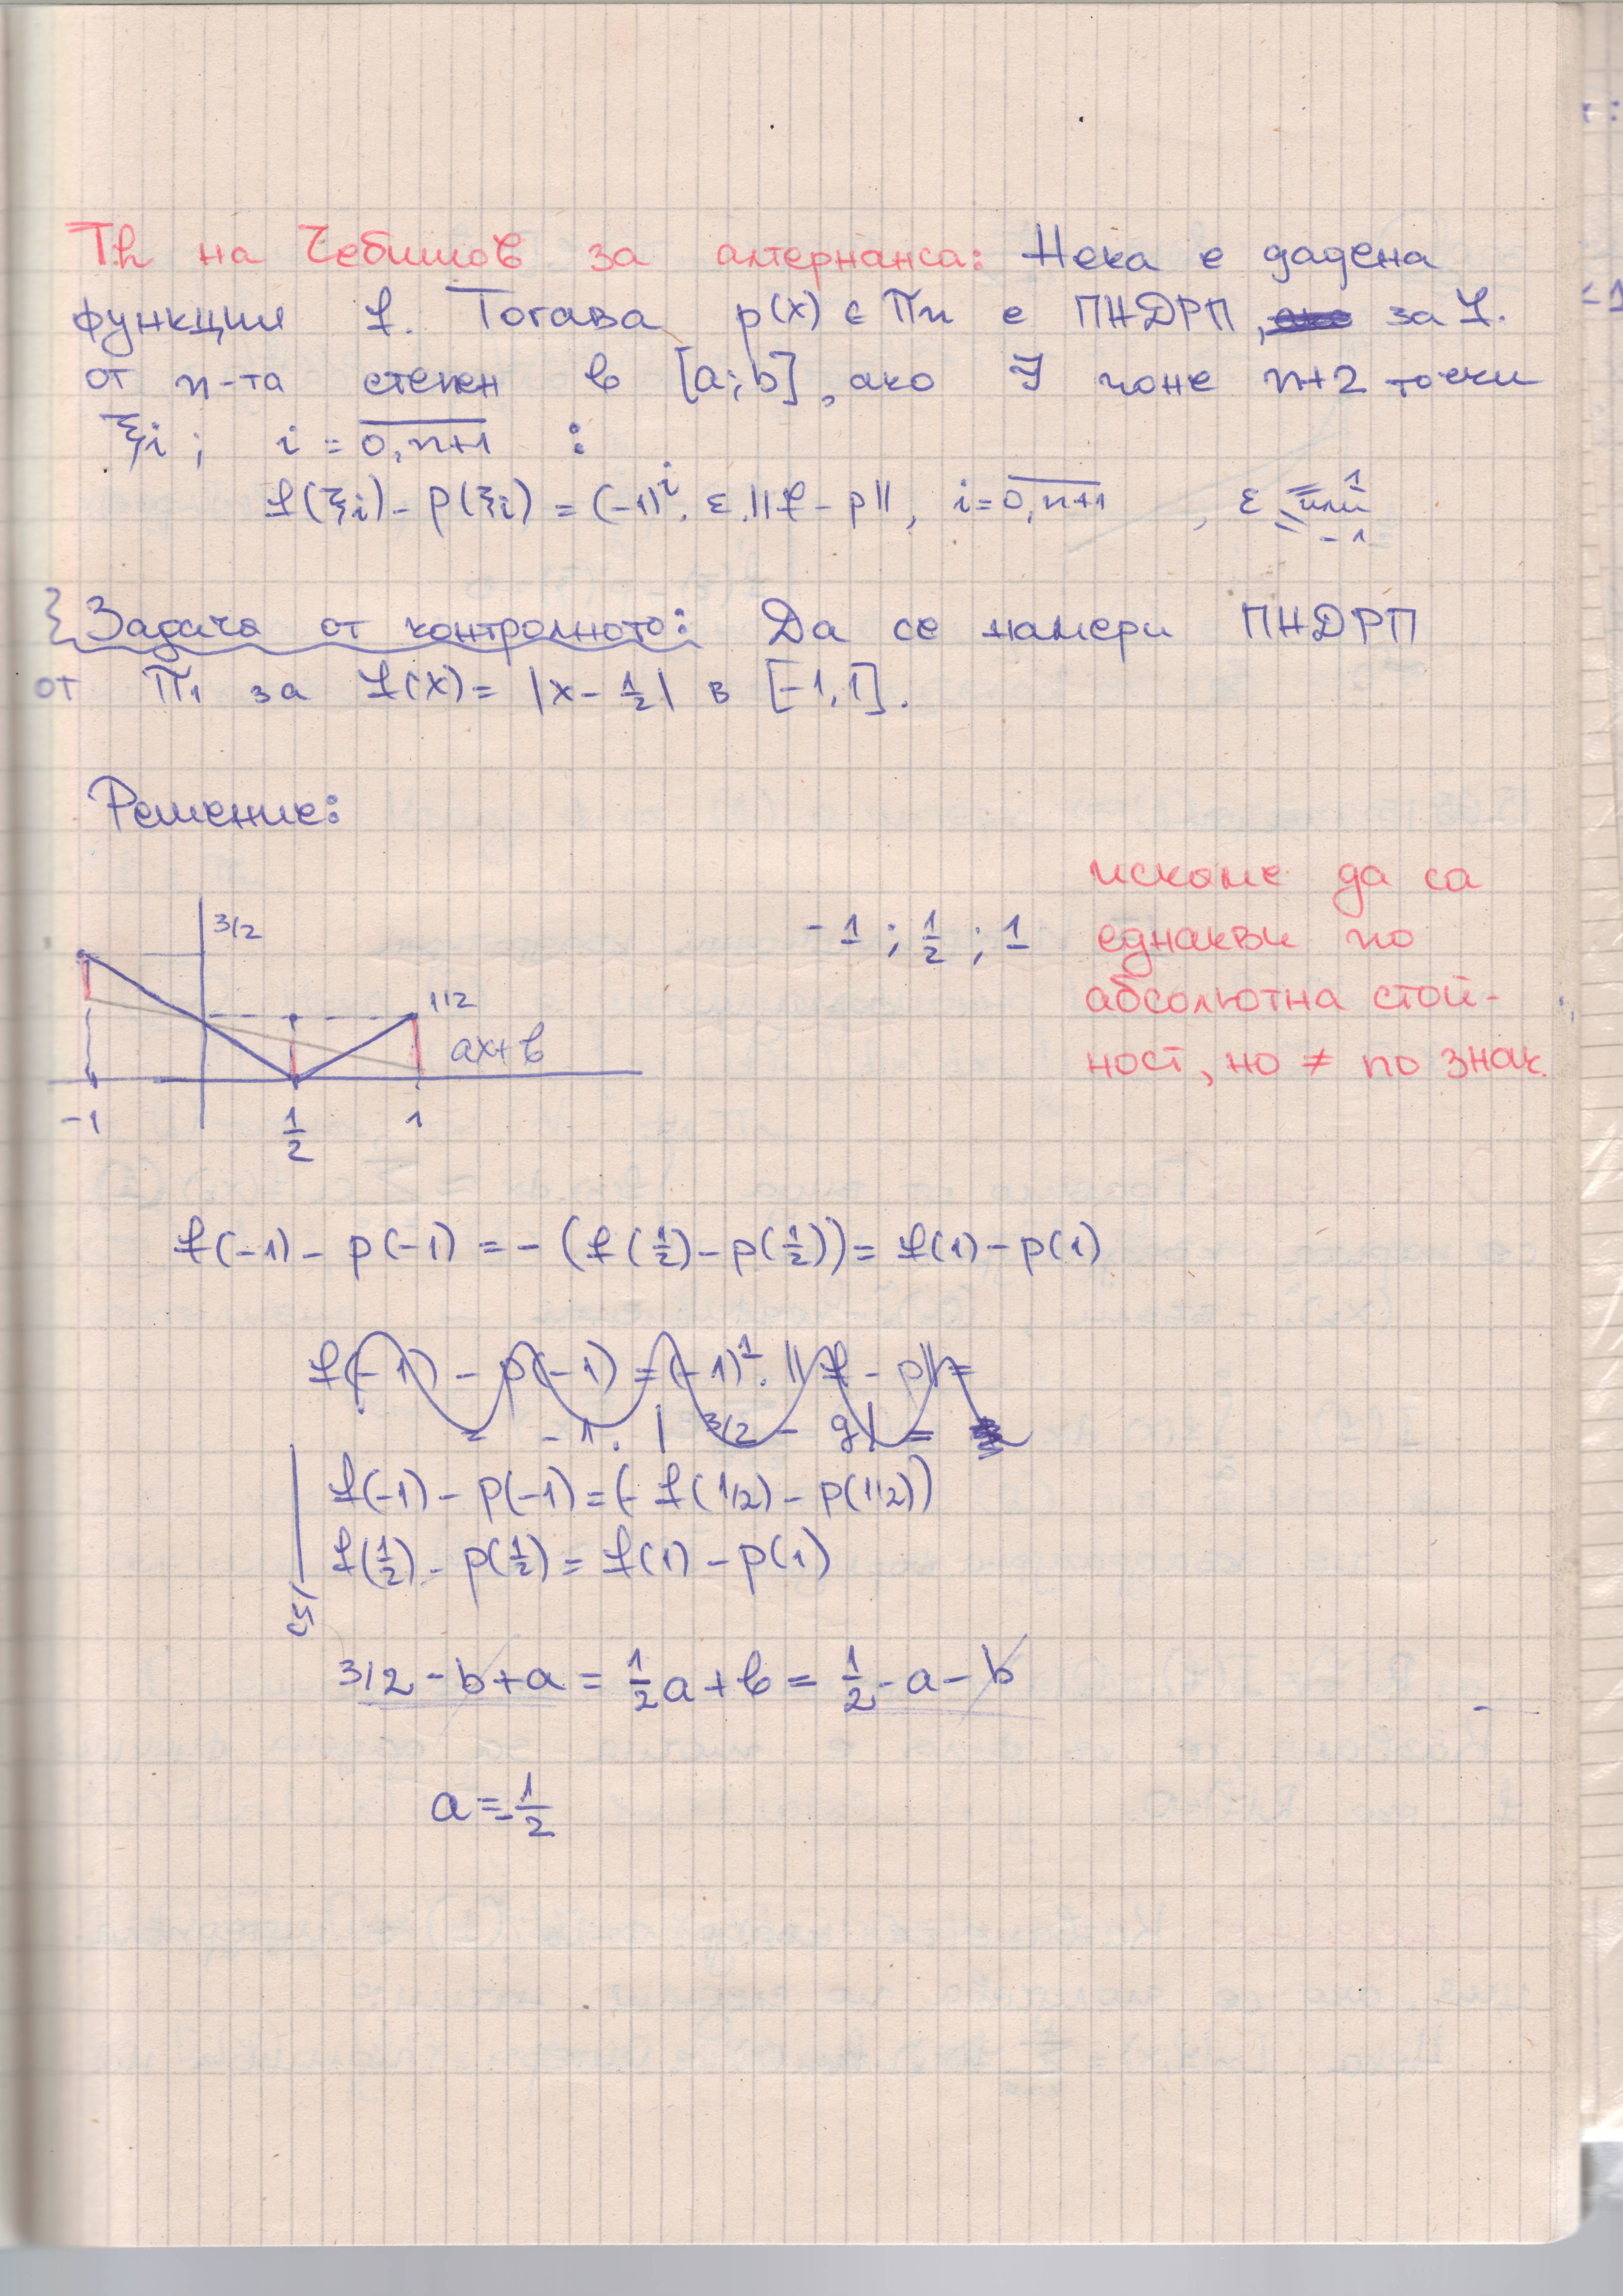 Th на Чебишов за алтернанса: Нека е дадена
функция f. Тогава p(x) ∈ Πn е ПНДРП, за f.
от n-та степен в [a;b], ако ∃ поне n+2 точки
ξi ; i = 0,n+1 :
f(ξi) - p(ξi) = (-1)^i . ε.||f - p||, i = 0,n+1 , ε = 1 или -1
Задача от контролното: Да се намери ПНДРП
от Π1 за f(x) = |x - 1/2| в [-1,1].
Решение:
3/2
1/2
ax+b
-1 1/2 1
-1 ; 1/2 ; 1
искаме да са
еднакви по
абсолютна стой-
ност, но ≠ по знак.
f(-1) - p(-1) = - (f(1/2) - p(1/2)) = f(1) - p(1)
f(-1) - p(-1) = (-1)^1 . ||f - p|| =
= -1 . | 3/2 - g| =
f(-1) - p(-1) = (- f(1/2) - p(1/2))
f(1/2) - p(1/2) = f(1) - p(1)
3/2 - b + a = 1/2 a + b = 1/2 - a - b
a = -1/2